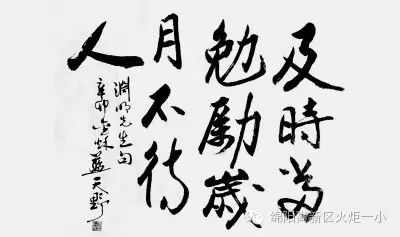 及時當
勉勵歲
月不待
人
淵明先生句
辛卯金秋藍天野
绵阳高新区火炬一小